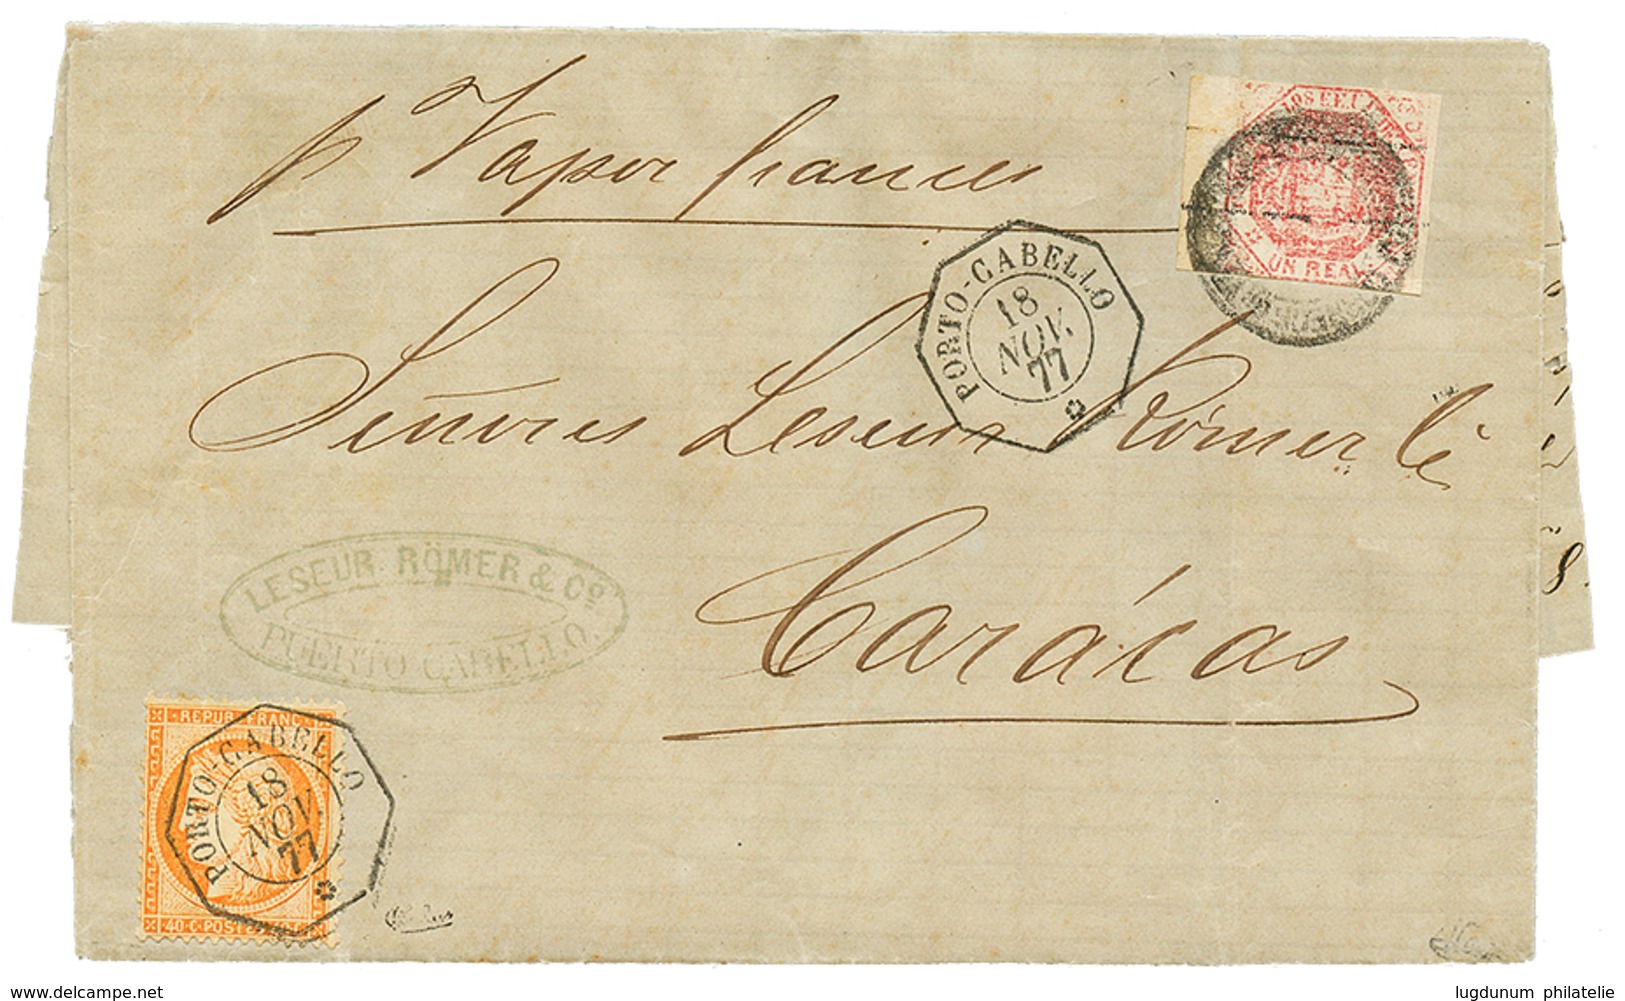 p Vapor frances
LOS EE.U
UN REAL
PORTO-CABELLO
18
NOV.
77
Señores Leseur Römer & Cº
LESEUR RÖMER & Cº
PUERTO CABELLO.
Carácas
REPUB FRANC
PORTO-CABELLO
18
NOV.
77
40 C POSTES
8
delcampe.net
lugdunum philatelie